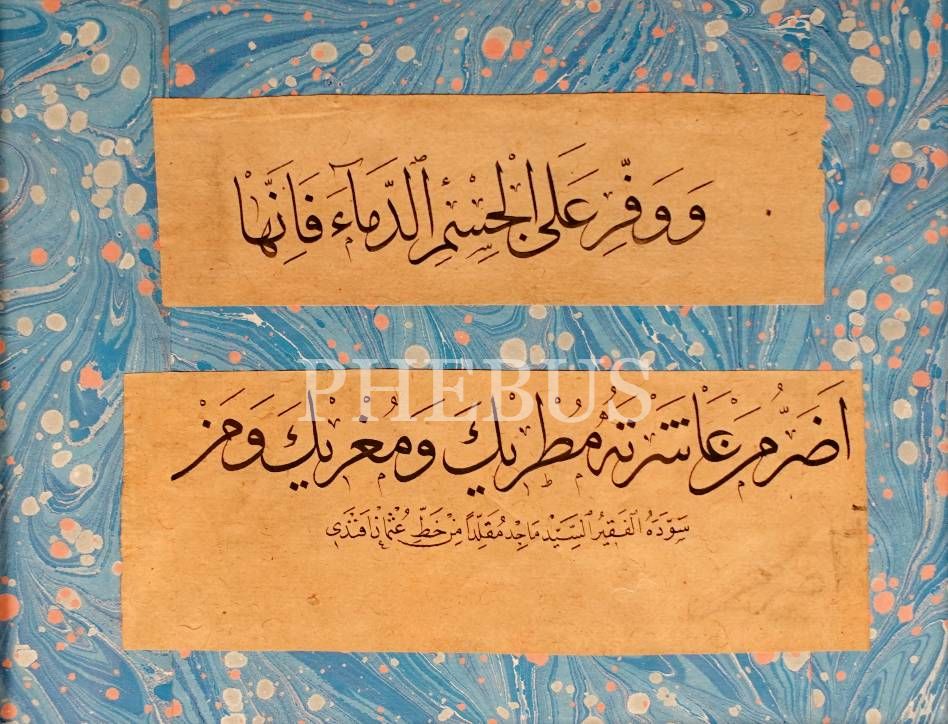 وَوَفِّرْ عَلَى الْجِسْمِ الدِّمَاءَ فَاِنَّهَا
PHEBUS
اَضَرُّ مَنْ عَاشَرْتَهُ مُطْرِيكَ وَمُغْرِيكَ وَمَنْ
سَوَّدَهُ الْفَقِيرُ السَّيِّدْ مَاجِدْ مُقَلِّدًا مِنْ خَطِّ عُثْمَانْ اَفَنْدَى